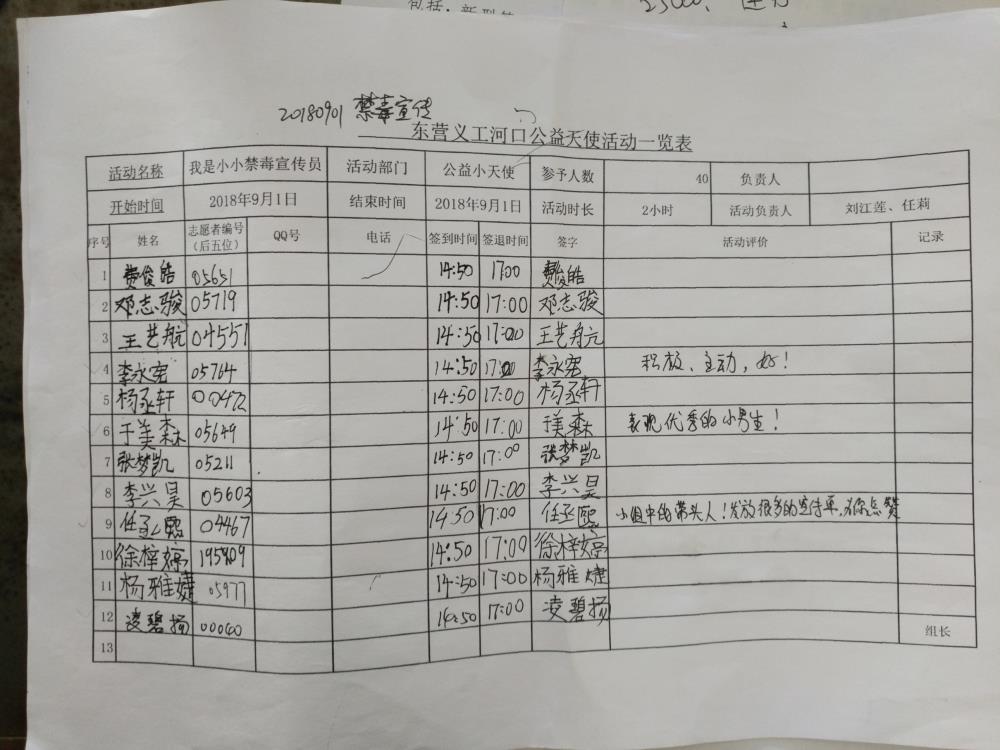 包括：新型
25000、
20180901 禁毒宣传
东营义工河口公益天使活动一览表
活动名称 我是小小禁毒宣传员 活动部门 公益小天使 参予人数 40 负责人
开始时间 2018年9月1日 结束时间 2018年9月1日 活动时长 2小时 活动负责人 刘江莲、任莉
序号 姓名 志愿者编号（后五位） QQ号 电话 签到时间 签退时间 签字 活动评价 记录
1 费俊皓 05651 14:50 17:00 费俊皓
2 邓志骏 05719 14:50 17:00 邓志骏
3 王艺航 04551 14:50 17:00 王艺航
4 李永宪 05764 14:50 17:00 李永宪 积极、主动，好！
5 杨丞轩 00472 14:50 17:00 杨丞轩
6 于美森 05649 14:50 17:00 于美森 表现优秀的小男生！
7 张梦凯 05211 14:50 17:00 张梦凯
8 李兴昊 05603 14:50 17:00 李兴昊
9 任丞熙 04467 14:50 17:00 任丞熙 小组中的带头人！发放很多的宣传单，为你点赞
10 徐梓婷 14:50 17:00 徐梓婷
11 杨雅婕 05977 14:50 17:00 杨雅婕
12 凌碧扬 00000 14:50 17:00 凌碧扬 组长
13